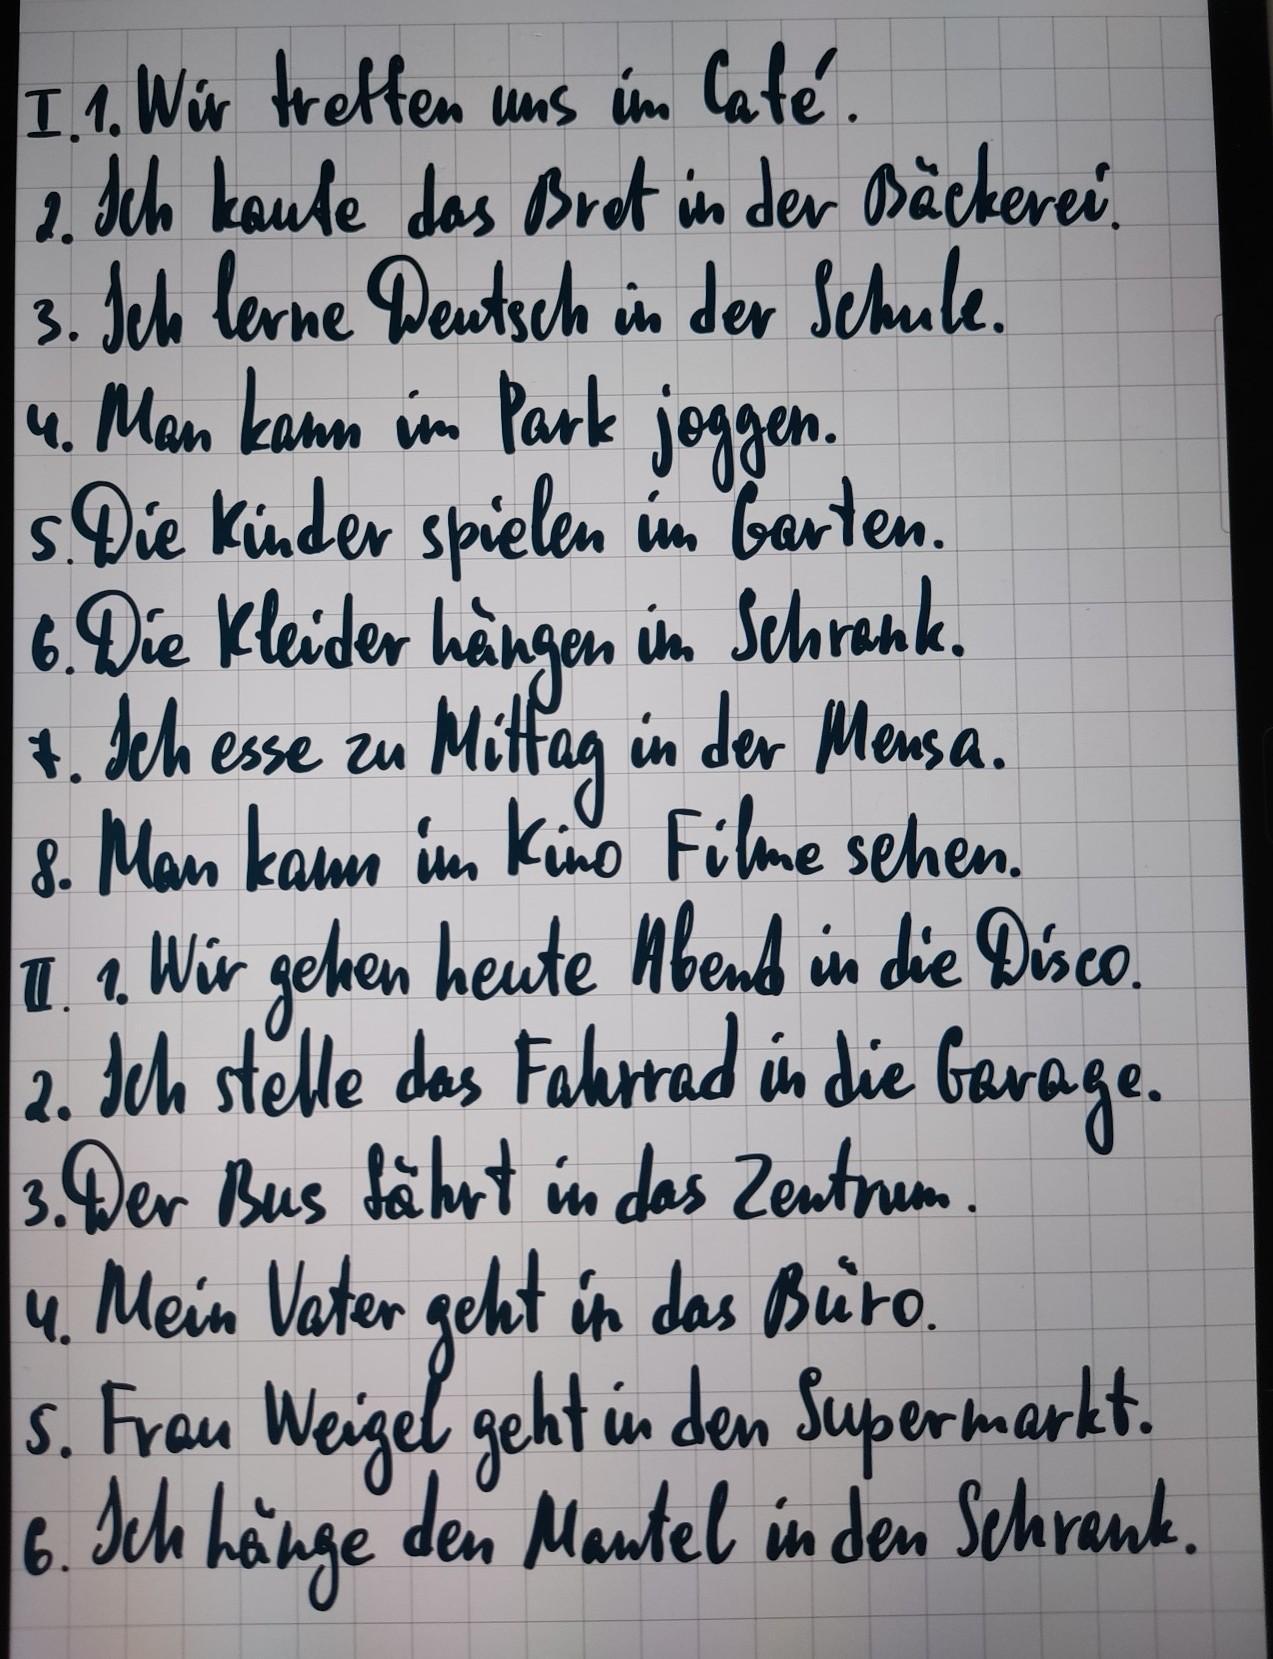 I. 1. Wir treffen uns im Café.
2. Ich kaufe das Brot in der Bäckerei.
3. Ich lerne Deutsch in der Schule.
4. Man kann im Park joggen.
5. Die Kinder spielen im Garten.
6. Die Kleider hängen im Schrank.
7. Ich esse zu Mittag in der Mensa.
8. Man kann im Kino Filme sehen.
II. 1. Wir gehen heute Abend in die Disco.
2. Ich stelle das Fahrrad in die Garage.
3. Der Bus fährt in das Zentrum.
4. Mein Vater geht in das Büro.
5. Frau Weigel geht in den Supermarkt.
6. Ich hänge den Mantel in den Schrank.